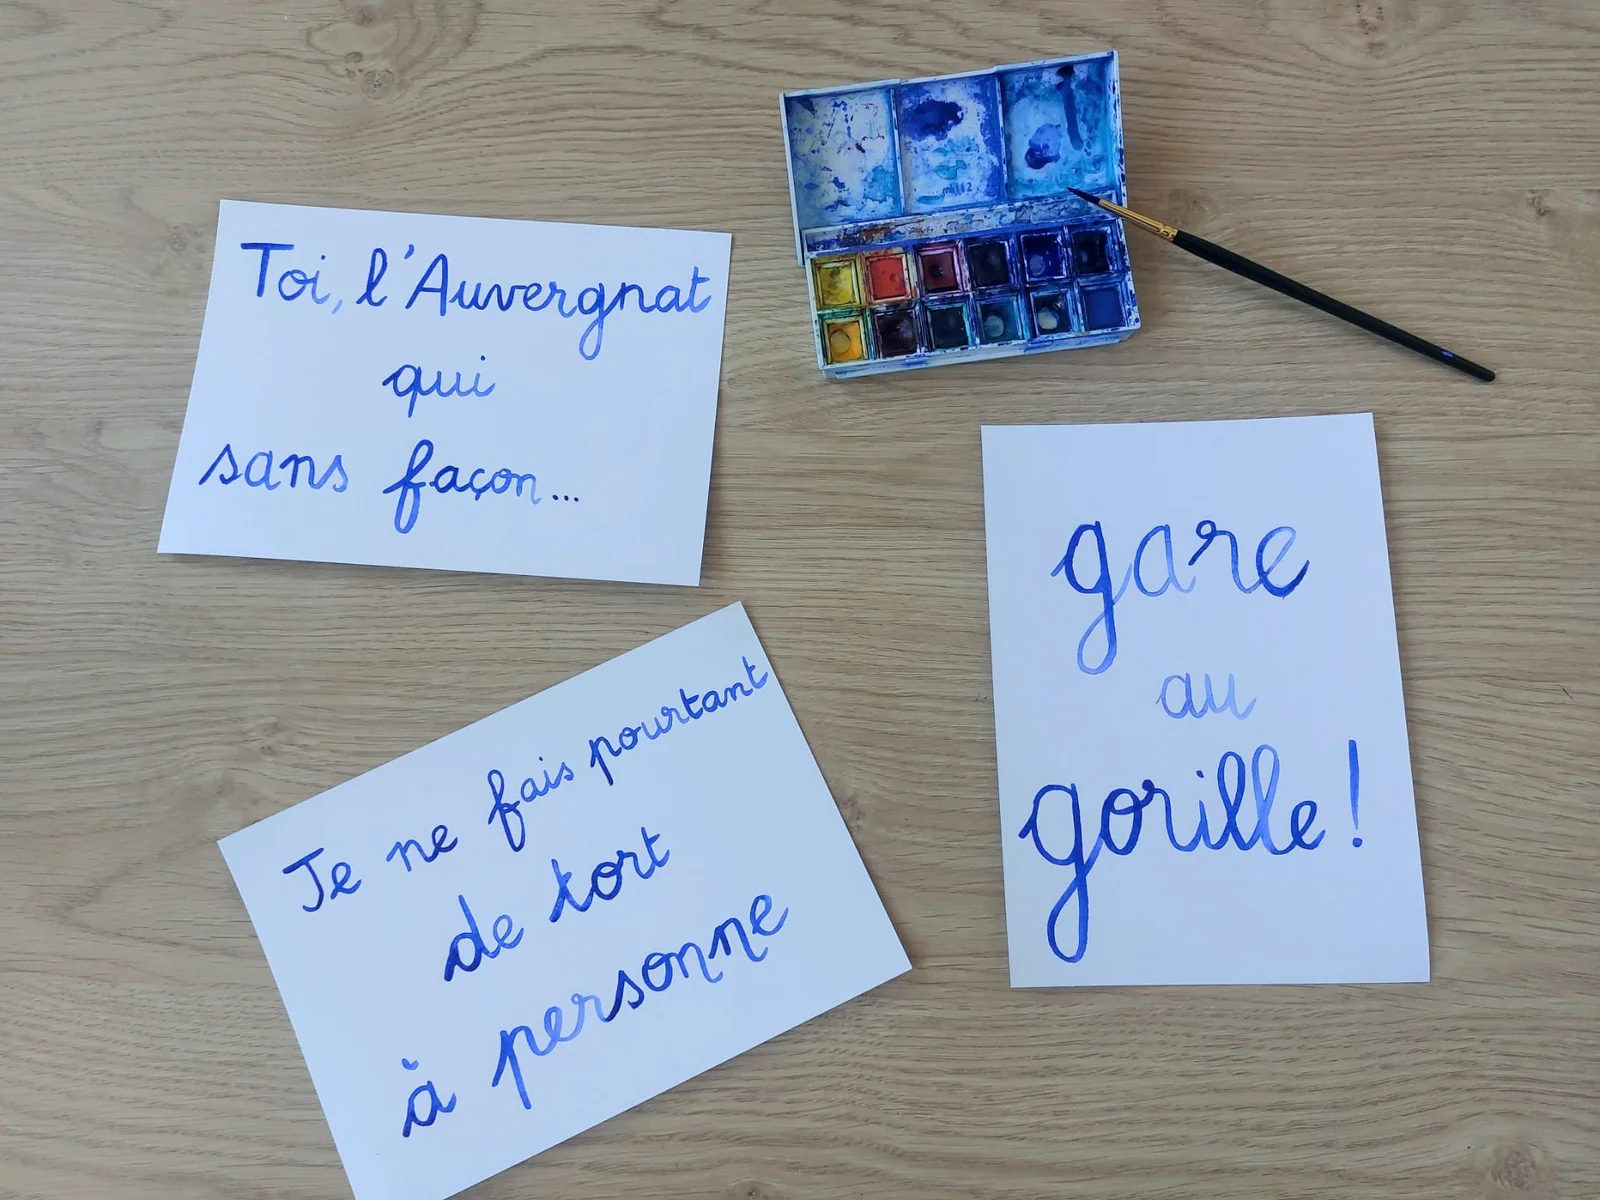 Toi, l'Auvergnat
qui
sans façon...
gare
au
gorille !
Je ne fais pourtant
de tort
à personne